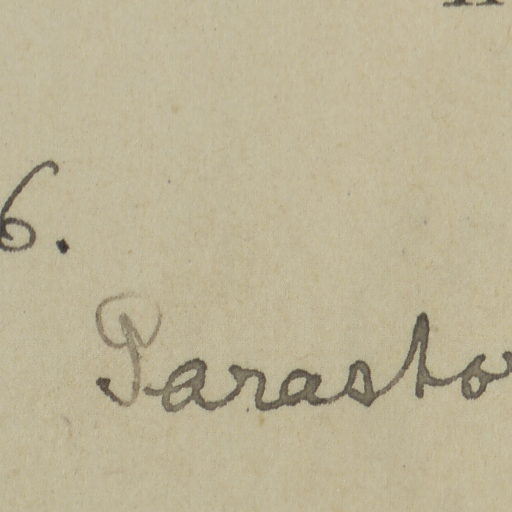 6.
Parasto